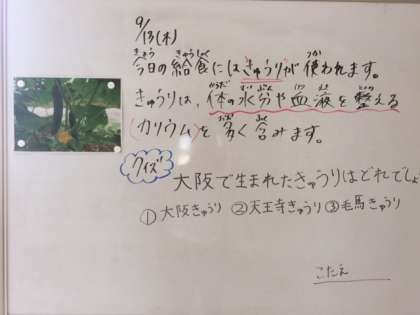 9/13(木)
今日の給食にはきゅうりが使われます。
きゅうりは、体の水分や血液を整える
(カリウム)を多く含みます。
クイズ
大阪で生まれたきゅうりはどれでしょ
①大阪きゅうり ②天王寺きゅうり ③毛馬きゅうり
こたえ